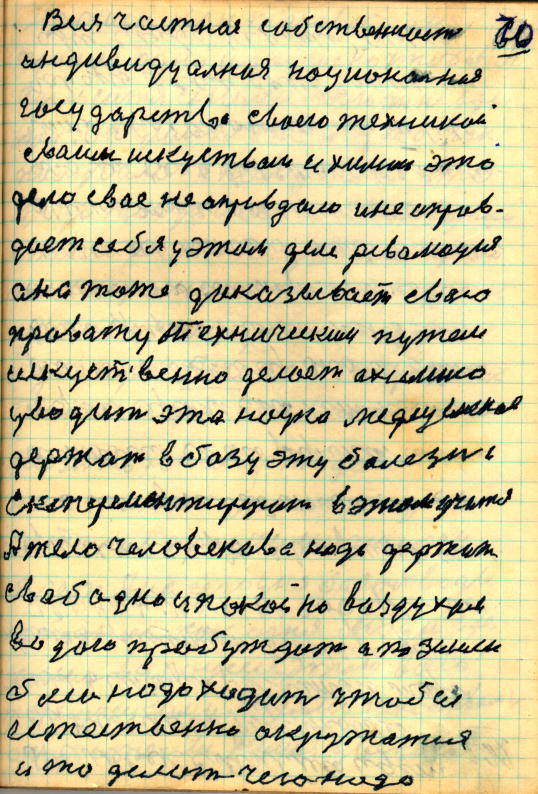 Вся частная собственность 60
индивидуалная националная
государства своего техникой
сваим искуством и химии это
дело свае не оправдало и не оправ-
дает себя у этом деле революция
ана тоже доказывает сваю
правату техническим путем
искуственно делает ахимико
уводит эта наука медецинская
держат в базу эту болезнь и
експеременжируют в этом учатся
А тело человекава надь держат
свабодно и покойно воздухам
вадою пробуждат а по земли
было надо ходит чтобы
естественно окружатся
и то делат чего надо